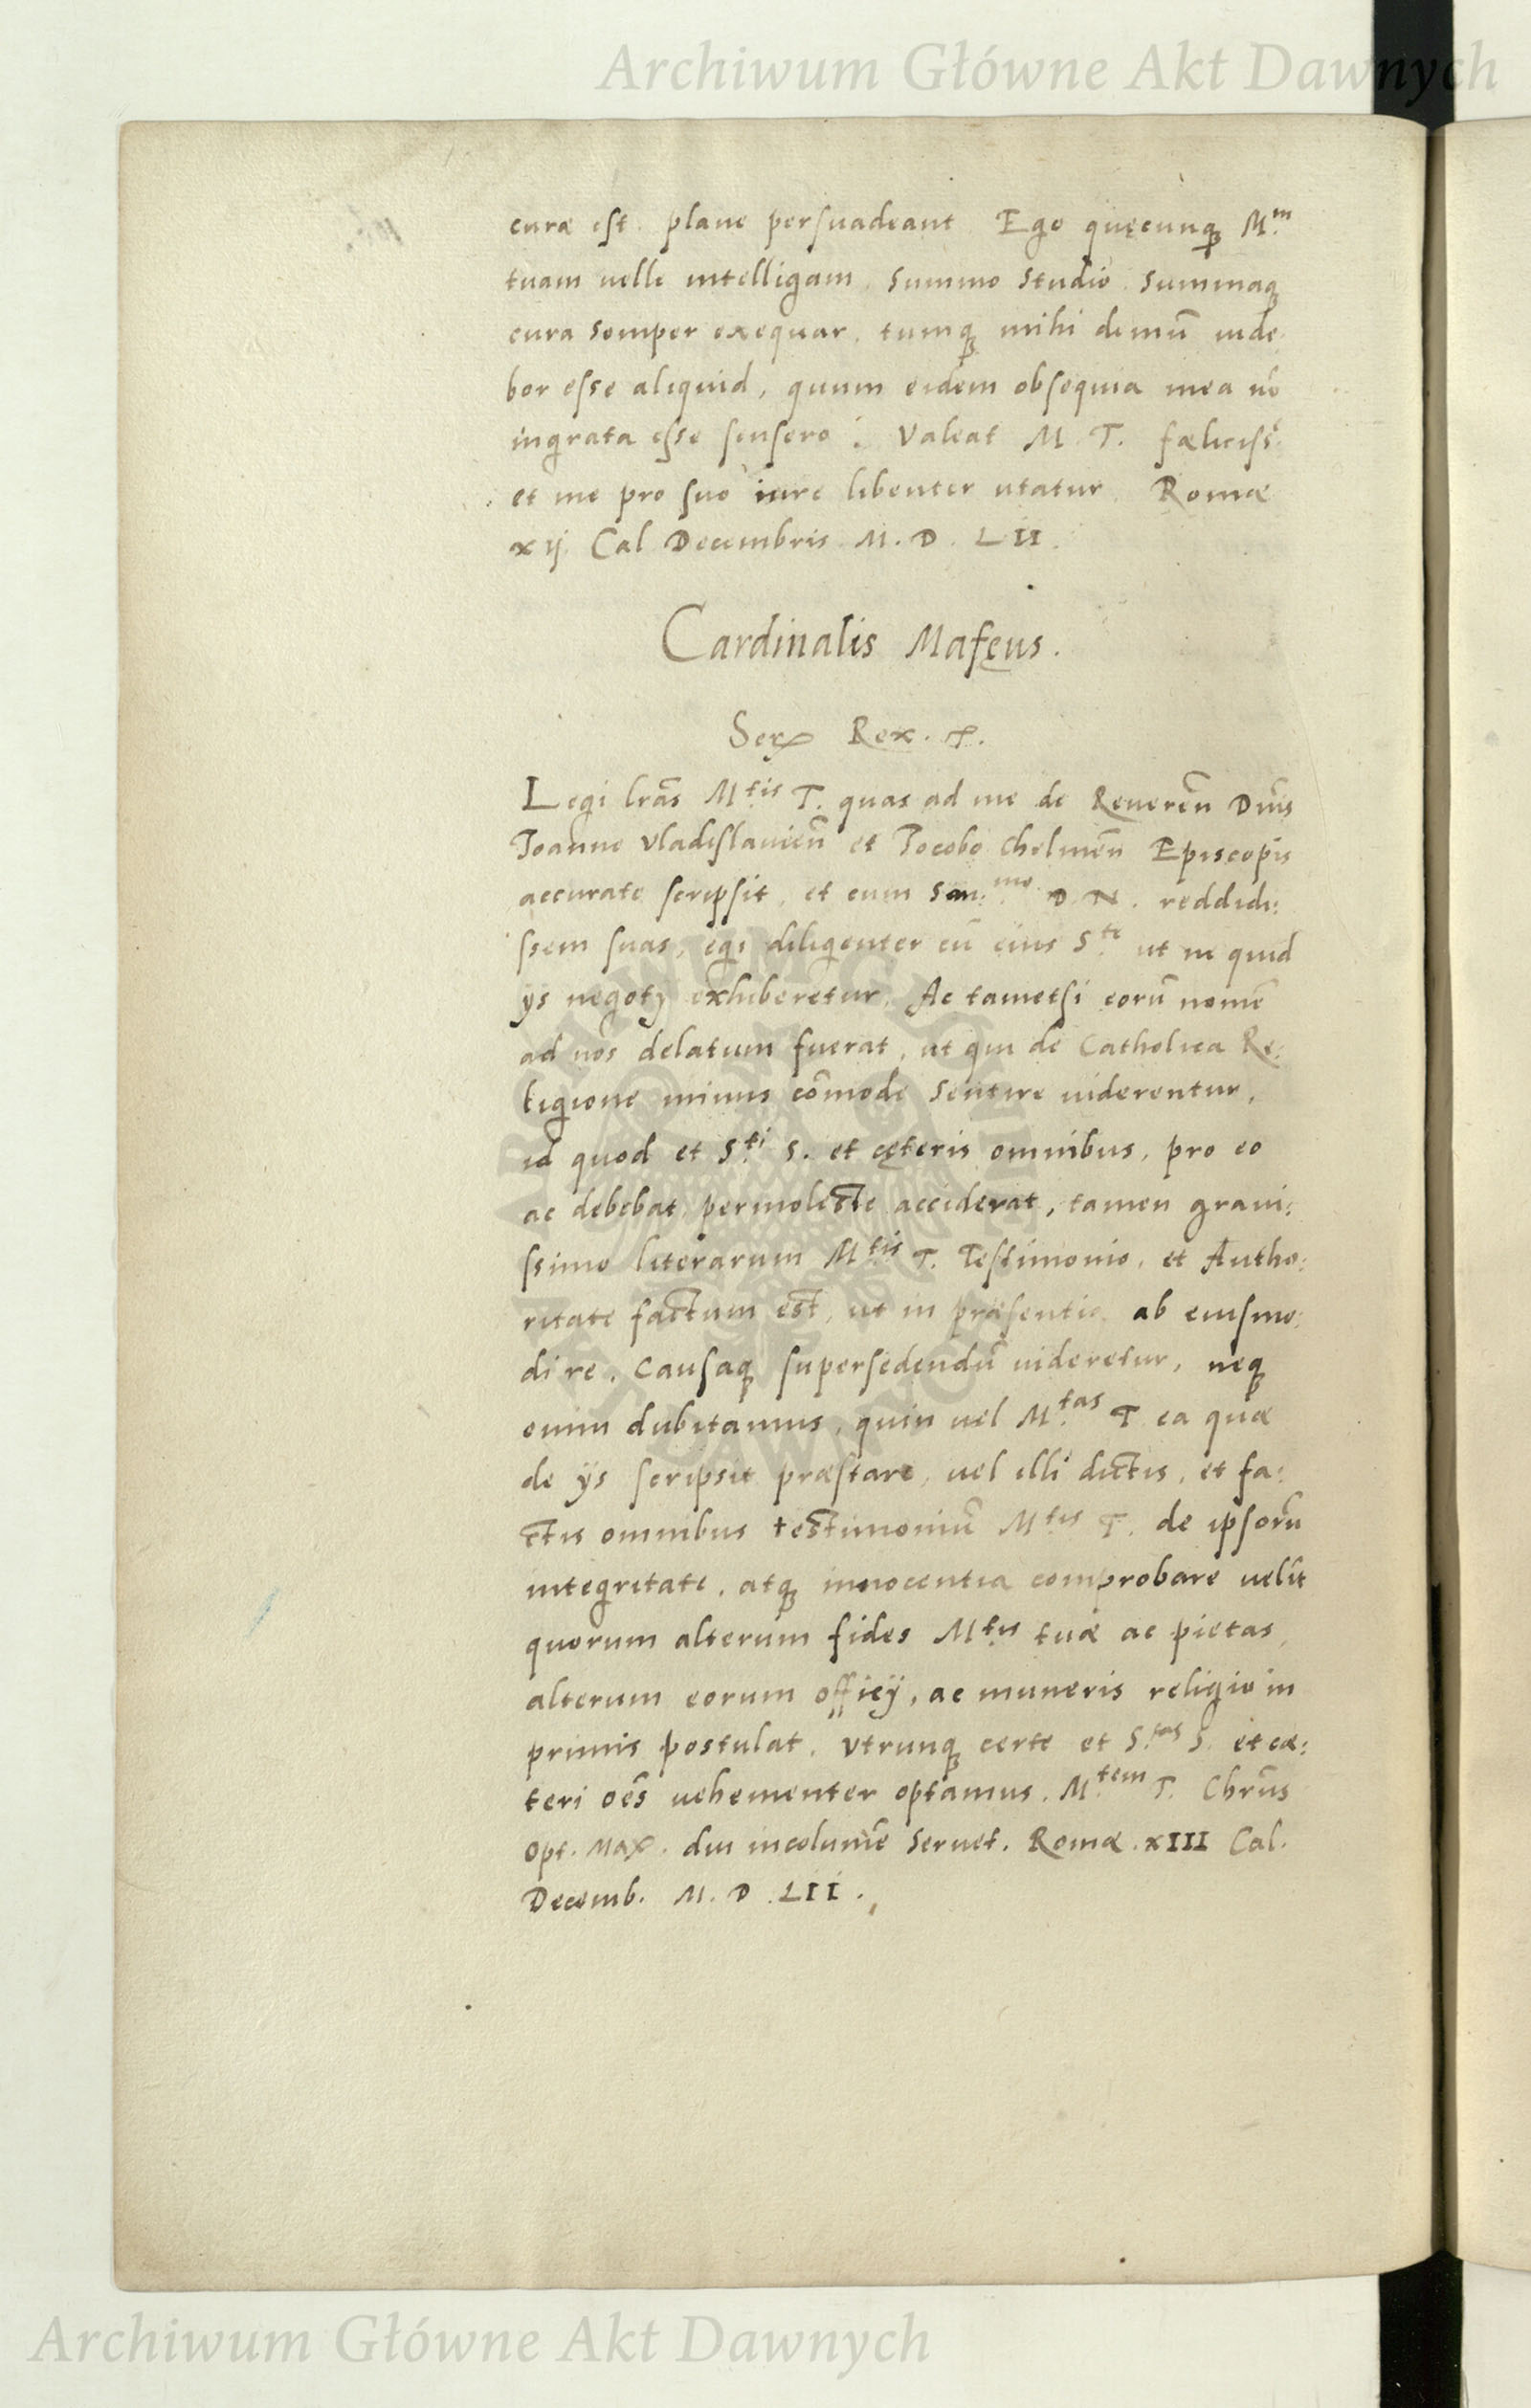 Archiwum Główne Akt Dawnych
curæ est. plane persuadeant Ego quęcunqꝫ M.m
tuam uelle intelligam, summo studio summaqꝫ
cura semper exequar, tumqꝫ mihi demū uide-
bor esse aliquid, quum eidem obsequia mea nō
ingrata esse sensero: Valeat M. T. fœliciss:
et me pro suo iure libenter utatur Romæ
xij Cal Decembris M. D. LII.
Cardinalis Mafęus.
Ser Rex.
Legi lrās M.tis T. quas ad me de Reuerēn Dnīs
Joanne Vladislauieñ et Jocobo Chelmeñ Episcopis
accurate scripsit, et cum San:mo D. N. reddidi:
ssem suas, egi diligenter cū eius S.te ut ne quid
ijs negotij exhiberetur, Ac tametsi eorū nomē
ad nōs delatum fuerat, ut qui de Catholica Re:
ligione minus cōmode sentire uiderentur,
id quod et S.ti S. et cęteris omnibus, pro eo
ac debebat permoleste acciderat, tamen graui:
ssimo literarum M.tis T. Testimonio, et Autho:
ritate factum est, ut in præsentia ab eiusmo:
di re, causaqꝫ supersedendū uideretur, neqꝫ
enim dubitamus, quin uel M.tas T. ea quæ
de ijs scripsit præstare, uel illi dictis, et fa:
ctis omnibus testimoniū M.tis T. de ipsorū
integritate, atqꝫ innocentia comprobare uelīt
quorum alterum fides M.tis tuæ ac pietas,
alterum eorum officij, ac muneris religio in
primis postulat, Vtrunqꝫ certe et S.tas S. et cæ:
teri oēs uehementer optamus. M.tem T. Chrūs
Opt. Max. diu incolumē seruet. Romæ. XIII Cal.
Decemb. M. D. LII.
Archiwum Główne Akt Dawnych